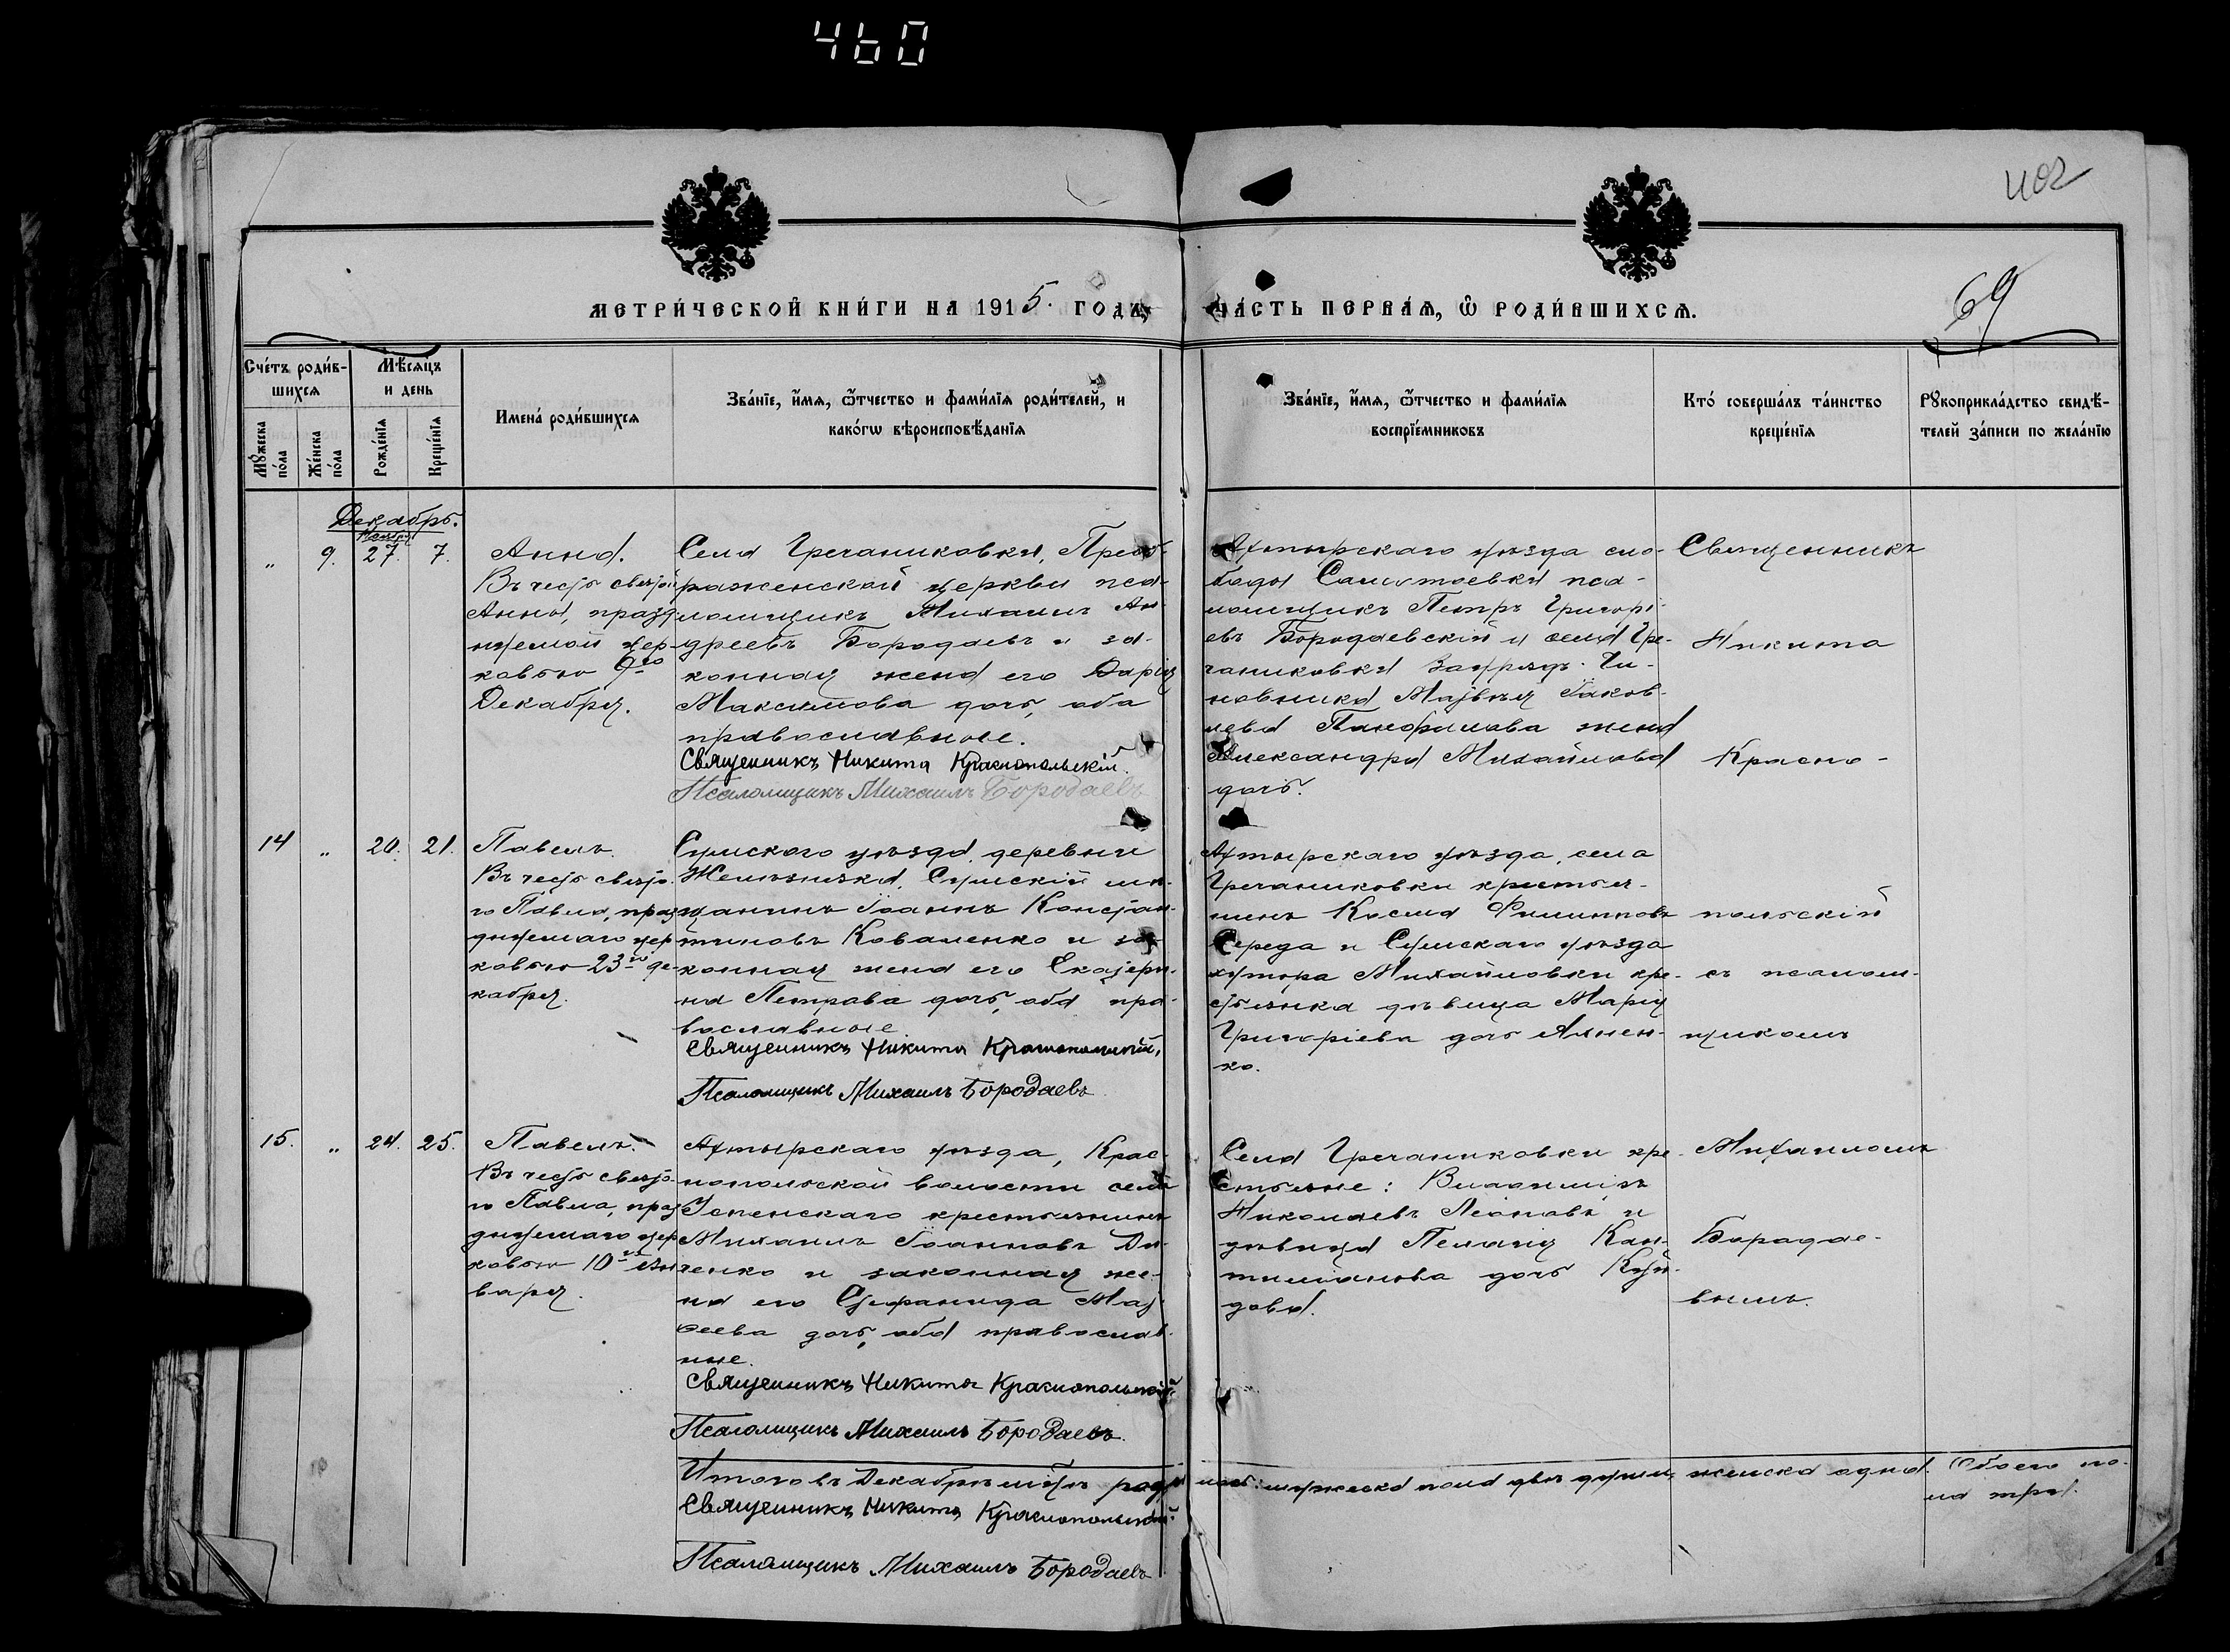 460
402
69
МЕТРИ́ЧЕСКОЙ КНИ́ГИ НА 1915. ГОДЪ,
ЧА́СТЬ ПЕРВА́Я, Ѡ҆ РОДИ́ВШИХСЯ.
Сче́тъ роди́в-
шихся
Мꙋ́жеска по́ла
Же́нска по́ла
Мѣ́сяцъ
и день
Рожде́нїя
Креще́нїя
Имена́ роди́вшихся
Зва́нїе, и҆́мя, ѻ҆́тчество и фами́лїя роди́телей, и
како́гѡ вѣроисповѣ́данїя
Зва́нїе, и҆́мя, ѻ҆́тчество и фами́лїя
воспрїе́мниковъ
Кто́ соверша́лъ та́инство
креще́нїя
Рꙋкоприкла́дство свидѣ́-
телей за́писи по жела́нїю
Декабрь.
Ноября
„ 9. 27. 7.
Анна.
Въ честь святой
Анны, празд
нуемой цер-
ковью 9го
Декабря.
Села Гречаниковки, Преоб-
раженской церкви пса-
ломщикъ Михаилъ Ан-
дреевъ Бородаевъ и за-
конная жена его Дарія
Максимова дочь, оба
православные.
Священникъ Никита Краснопольскій.
Псаломщикъ Михаилъ Бородаевъ
Ахтырскаго уѣзда сло-
боды Самотоевки пса-
ломщикъ Петръ Григорі-
евъ Бородаевскій и села Гре-
чаниковки Зауряд. Чи-
новника Матвѣя Іаков-
лева Панфилова жена
Александра Михайлова
дочь.
Священникъ
Никита
Красно-
польскій
съ псалом-
щикомъ
Михаиломъ
Борадае-
вымъ.
14 „ 20. 21.
Павелъ.
Въ честь свято-
го Павла, праз
днуемаго цер
ковью 23го де-
кабря.
Сумскаго уѣзда, деревни
Желѣзняка, Сумскій мѣ-
щанинъ Іоаннъ Констан-
тиновъ Коваленко и за-
конная жена его Екатери-
на Петрова дочь, оба пра-
вославные
Священникъ Никита Краснопольскій.
Псаломщикъ Михаилъ Бородаевъ
Ахтырскаго уѣзда, села
Гречаниковки крестья-
нинъ Косма Филипповъ
Середа и Сумскаго уѣзда
хутора Михайловки кре-
стьянка дѣвица Марія
Григоріева дочь Ахмен-
ко.
15. „ 24. 25.
Павелъ.
Въ честь свято-
го Павла, праз
днуемаго цер
ковью 10го Ян
варя.
Ахтырскаго уѣзда, Крас-
нопольской волости села
Успенскаго крестьянинъ
Михаилъ Іоанновъ Ди-
ченко и законная же-
на его Стефанида Мат
ѳеева дочь, оба православ-
ные.
Священникъ Никита Краснопольскій.
Псаломщикъ Михаилъ Бородаевъ.
Села Гречаниковки кре-
стьяне: Владиміръ
Николаевъ Леоновъ и
дѣвица Пелагія Кон-
дова.
Итого въ Декабрѣ мѣсяцѣ родилось: мужеска пола двѣ души, женска одна. Обоего по-
ла три.
Священникъ Никита Краснопольскій.
Псаломщикъ Михаилъ Бородаевъ